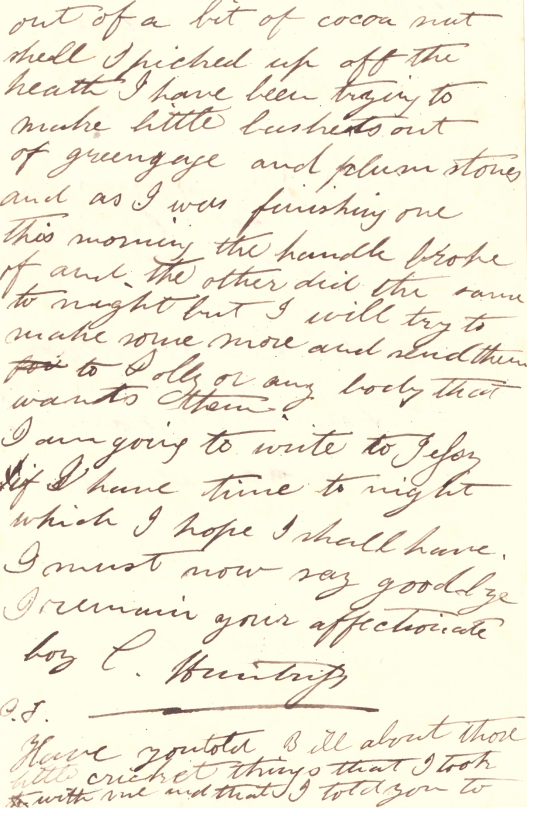 out of a bit of cocoa nut
shell I picked up off the
heath I have been trying to
make little baskets out
of greengage and plum stones
and as I was finishing one
this morning the handle broke
of and the other did the same
to night but I will try to
make some more and send them
to Polly or any body that
wants them
I am going to write to
if I have time to night
which I hope I shall have.
I must now say goodbye
I remain your affectionate
boy C. Huntriss
P.S.
Have you told Bill about those
little cricket things that I took
with me and that I told you to